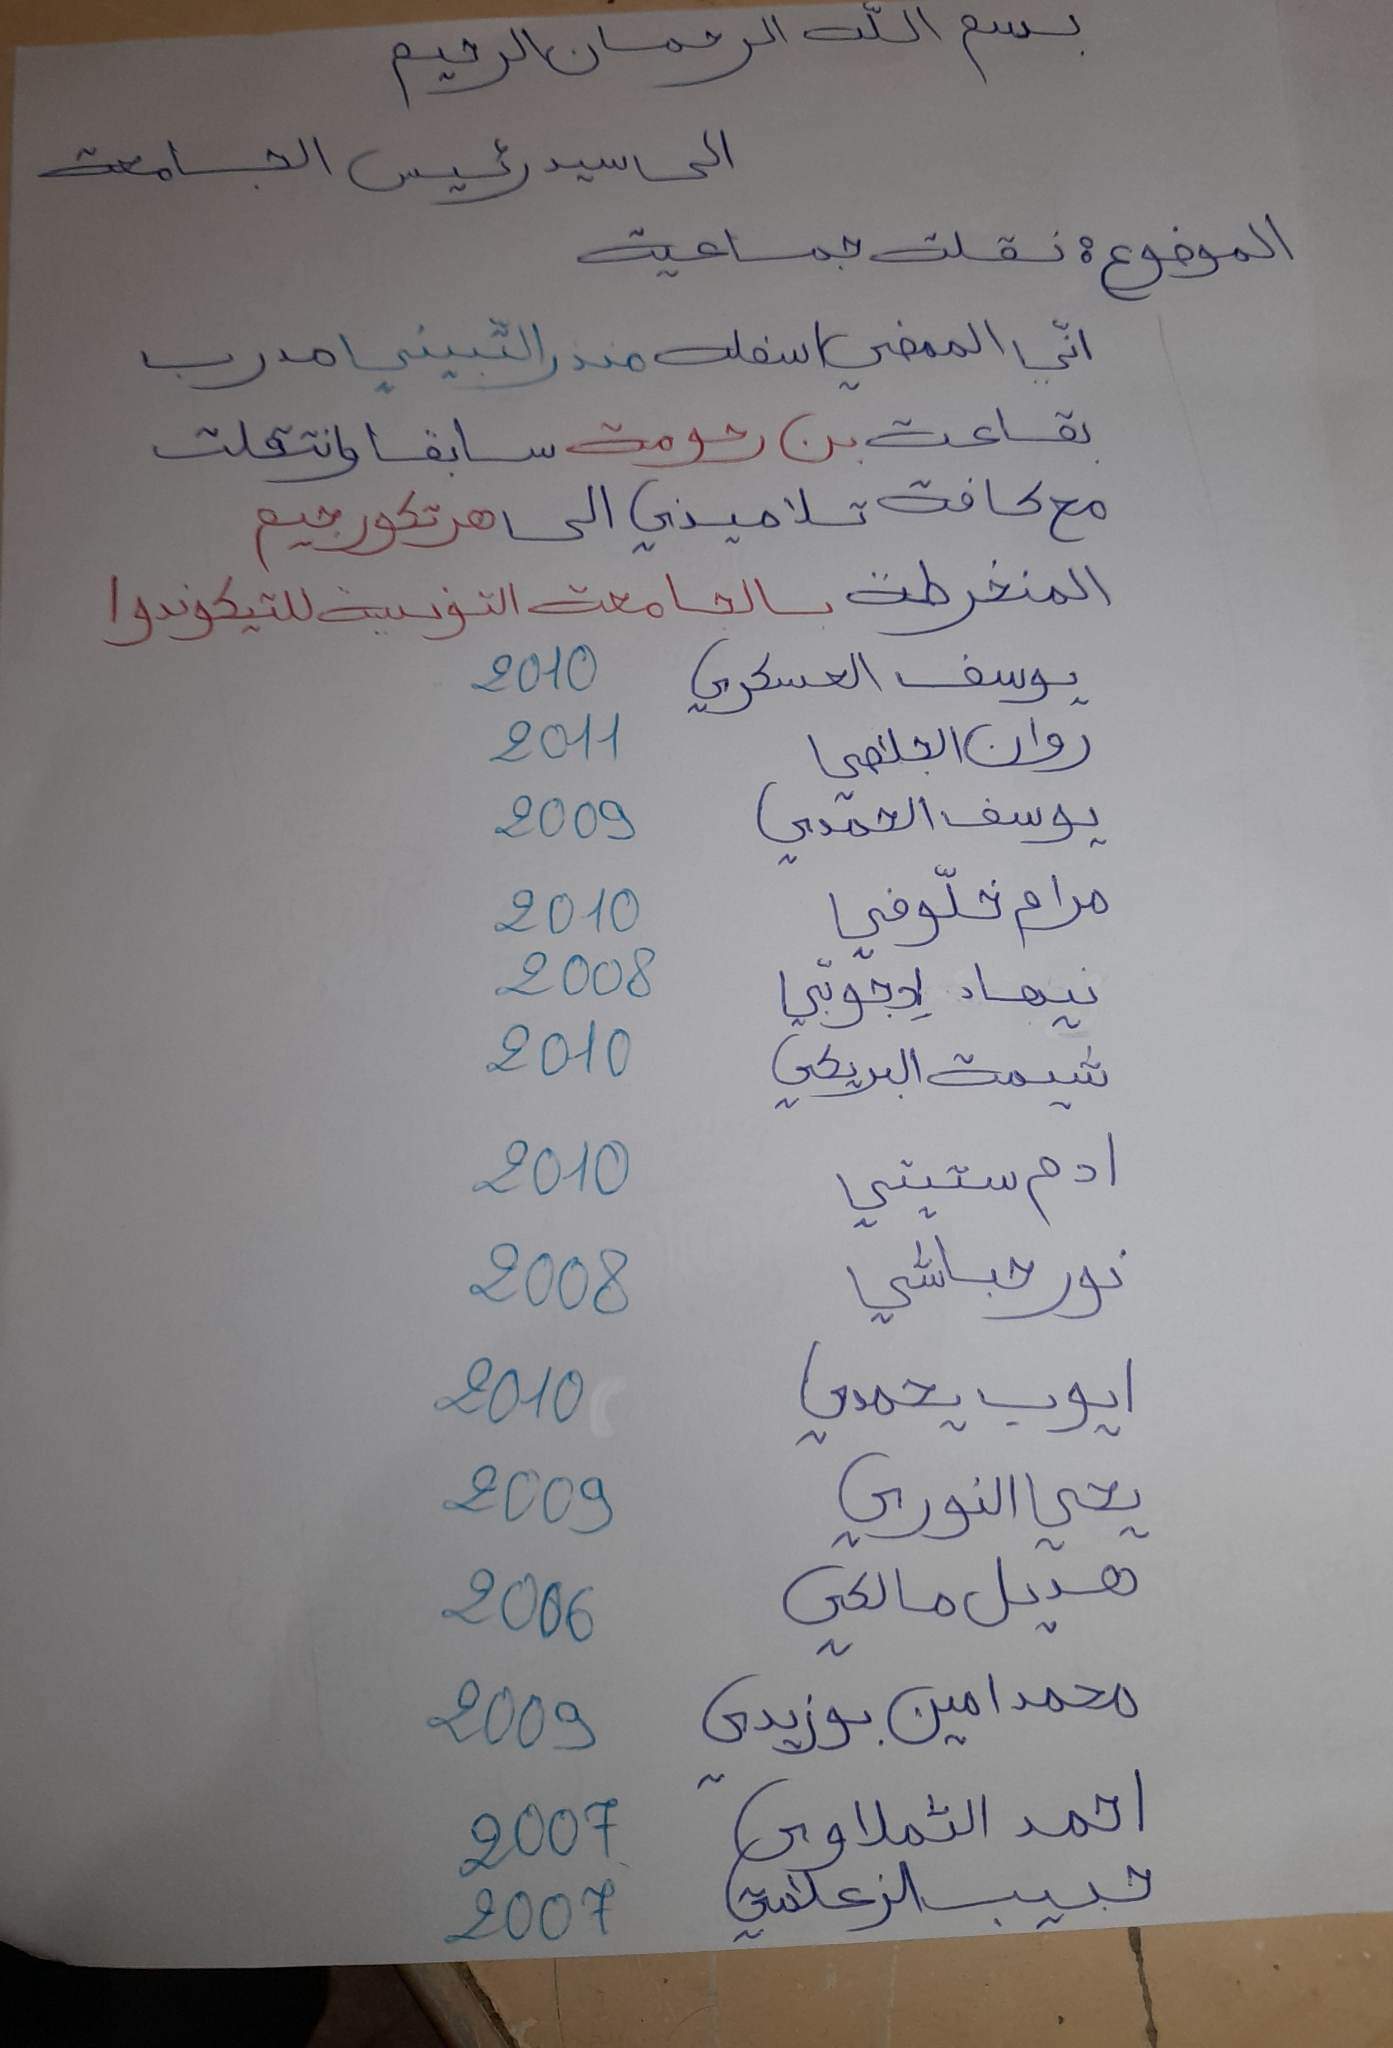 بسم الله الرحمان الرحيم
الى سيد رئيس الجامعة
الموضوع: نقلة جماعية
انّي الممضي اسفله منذر الثبيني مدرب
بقاعة بن رحومة سابقا وانتقلت
مع كافة تلاميذي الى هرتكور جيم
المنخرطة بالجامعة التونسية للتيكوندوا
يوسف العسكري 2010
روان الجلاصي 2011
يوسف الحمّدي 2009
مرام خلّوفي 2010
نيهاد 2008
شيمة البريكي 2010
ادم ستيتي 2010
نور حباشي 2008
ايوب يحمدي 2010
يحي النوري 2009
هديل مالكي 2006
محمد امين بوزيدي 2009
احمد الثملاوي 2007
حبيب 2007